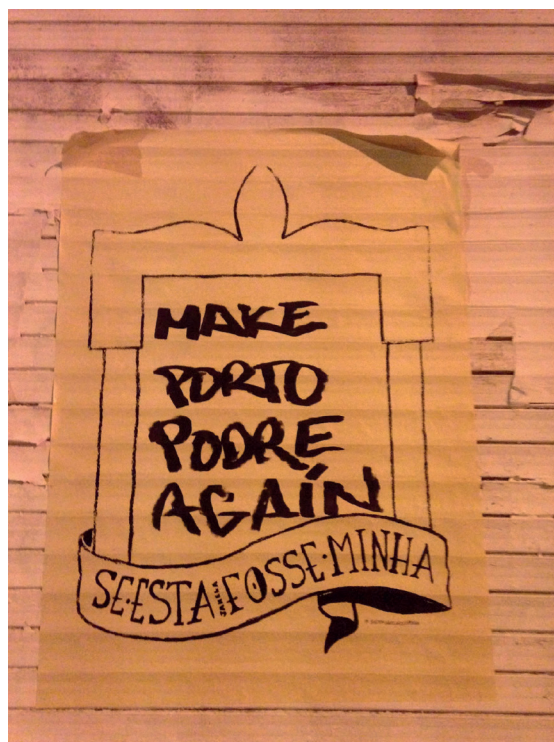 MAKE
PORTO
PODRE
AGAÍN
SE·ESTA JANELA FOSSE·MINHA